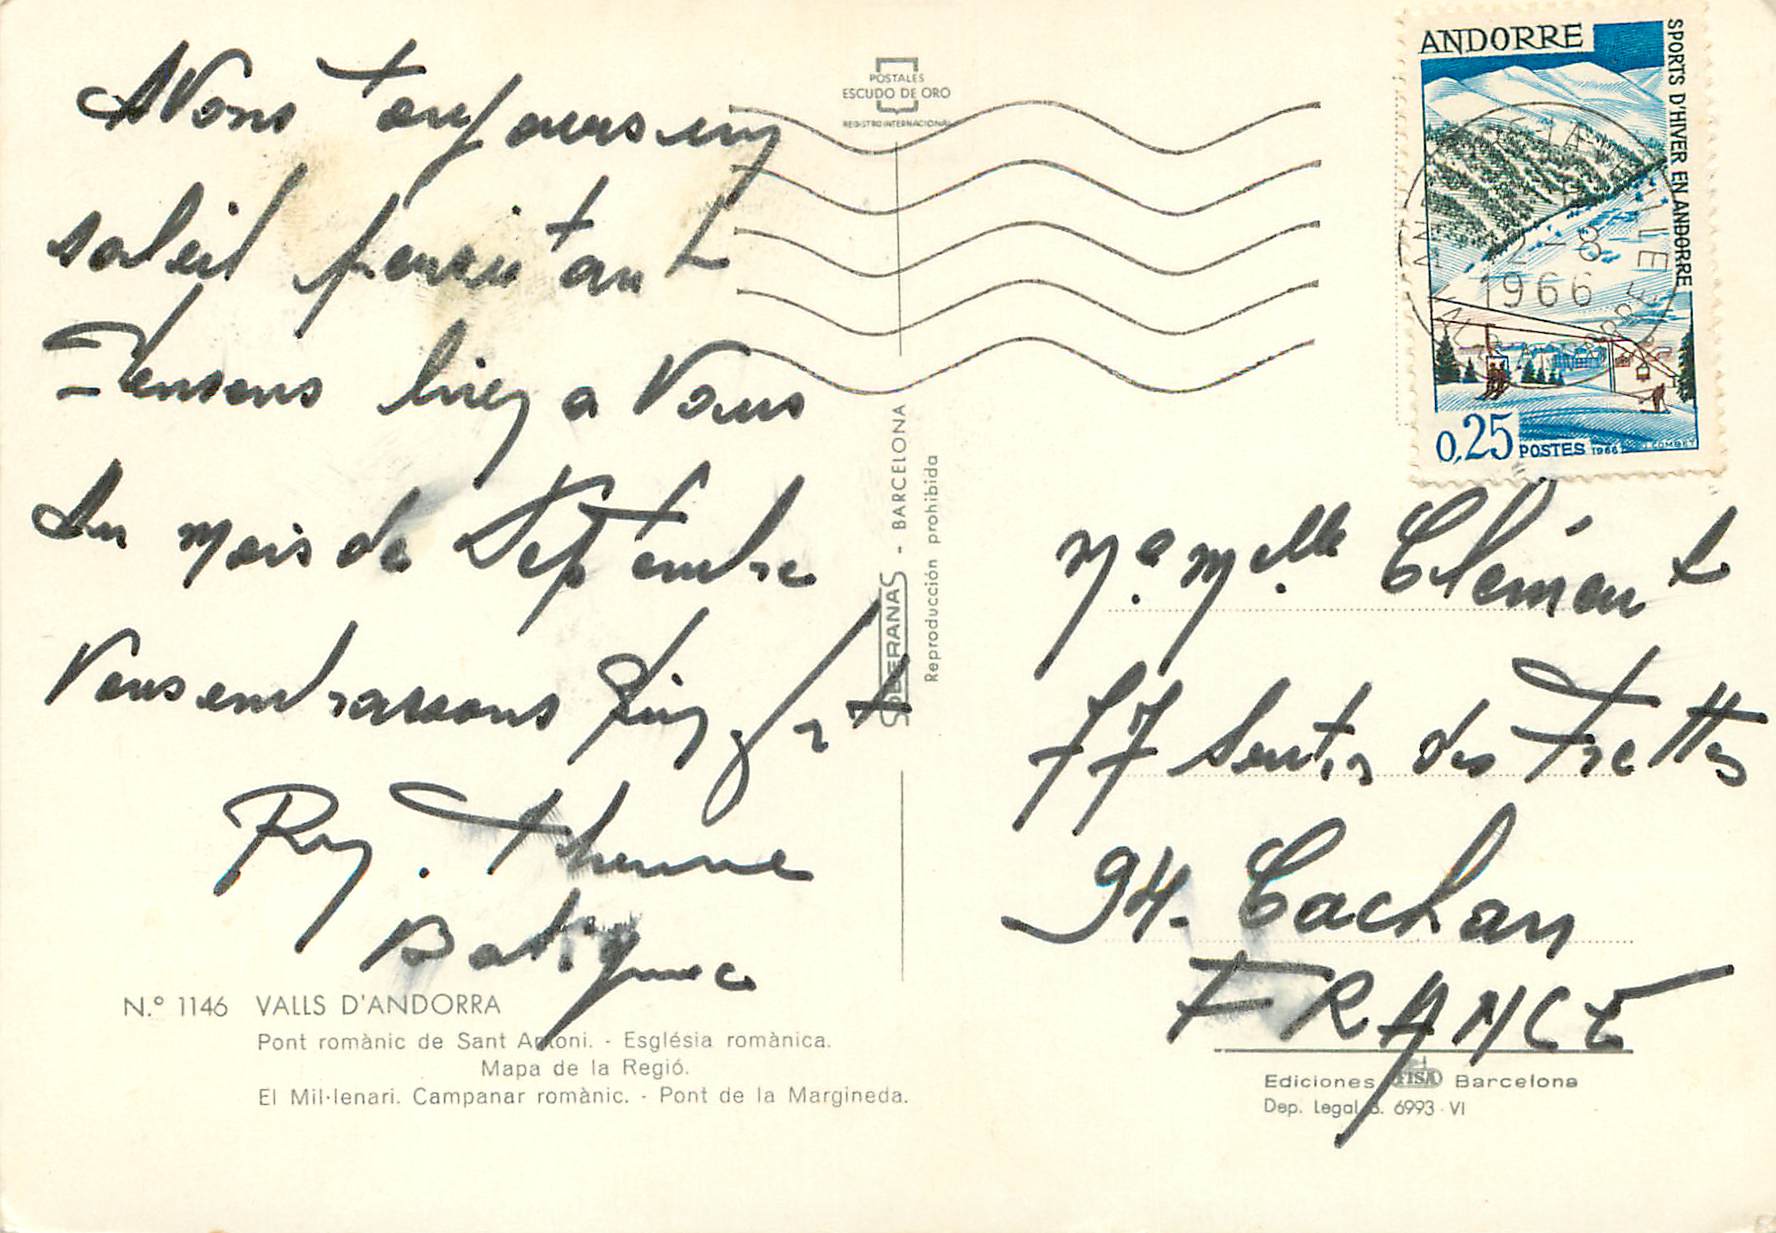 Avons toujours un
soleil
Pensons à Vous
Au mois de Septembre
Vous embrassons
Batignac
POSTALES
ESCUDO DE ORO
REGISTRO INTERNACIONAL
SOBERANAS - BARCELONA
Reproducción prohibida
ANDORRE
SPORTS D'HIVER EN ANDORRE
0,25 POSTES 1966
COMBET
2-8
1966
Clément
77 Sentier des Frettes
94. Cachan
FRANCE
N.º 1146 VALLS D'ANDORRA
Pont romànic de Sant Antoni. - Església romànica.
Mapa de la Regió.
El Mil·lenari. Campanar romànic. - Pont de la Margineda.
Ediciones FISA Barcelona
Dep. Legal B. 6993-VI